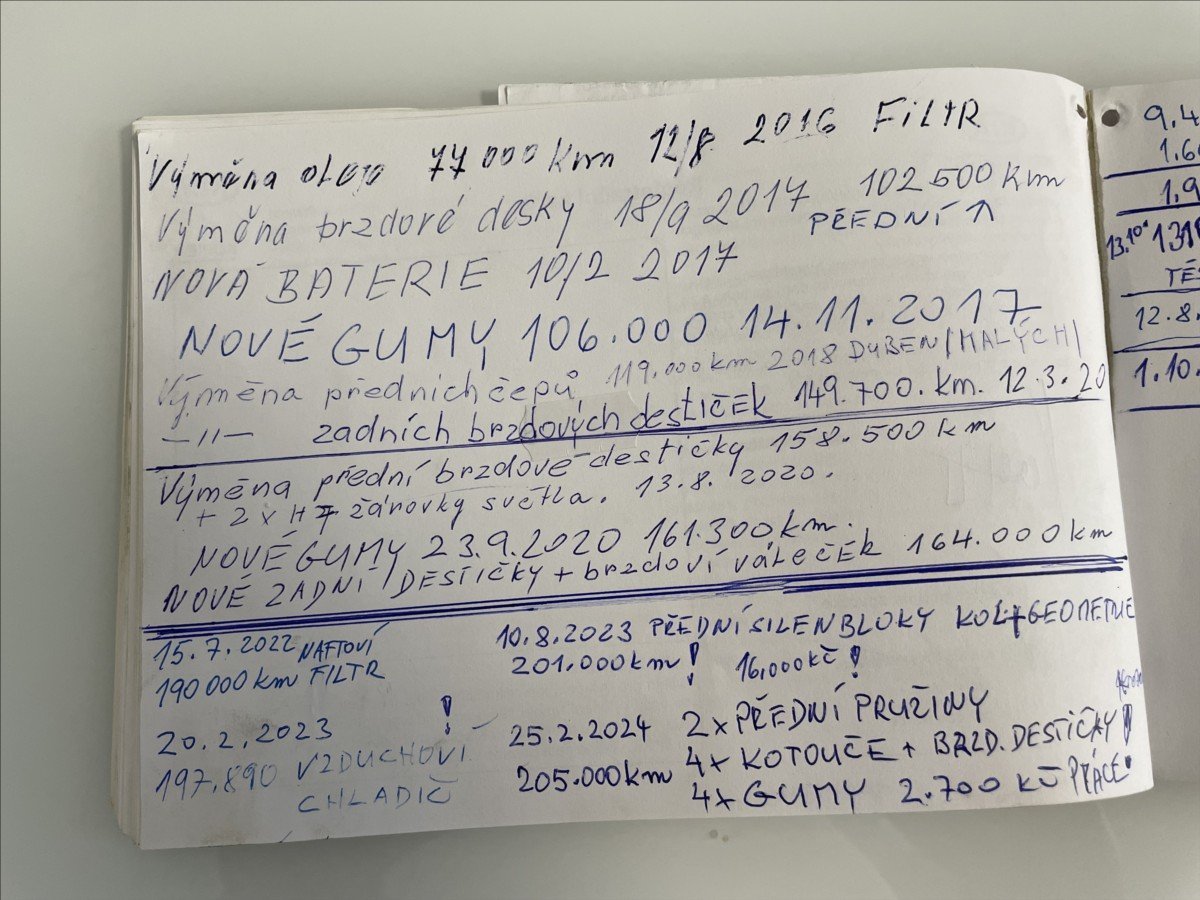 Výměna oleje 77 000 km 12/8 2016 FiLtR
Výměna brzdové desky 18/9 2017 102 500 km
PŘEDNÍ ↑
NOVÁ BATERIE 10/2 2017
NOVÉ GUMY 106.000 14.11.2017
Výměna předních čepů 119.000 km 2018 DUBEN/MALÝCH/
—〃— zadních brzdových destiček 149.700. km. 12.3.20
Výměna přední brzdové destičky 158.500 km
+ 2 x H7 žárovky světla. 13.8. 2020.
NOVÉ GUMY 23.9.2020 161.300 km.
NOVÉ ZADNÍ DESTIČKY + brzdoví váleček 164.000 km
15.7.2022 NAFTOVÍ
190 000 km FILTR
20.2.2023 !
197.890 VZDUCHOVÍ
CHLADIČ
10.8.2023 PŘEDNÍ SILENBLOKY KOL+GEOMETRIE
201.000 km ! 16.000 kč !
25.2.2024 2x PŘEDNÍ PRUŽINY
205.000 km 4x KOTOUČE + BRZD. DESTIČKY !
4x GUMY 2.700 KČ PRÁCE
9.4
1.6
1.9
13.10
12.8.
1.10.